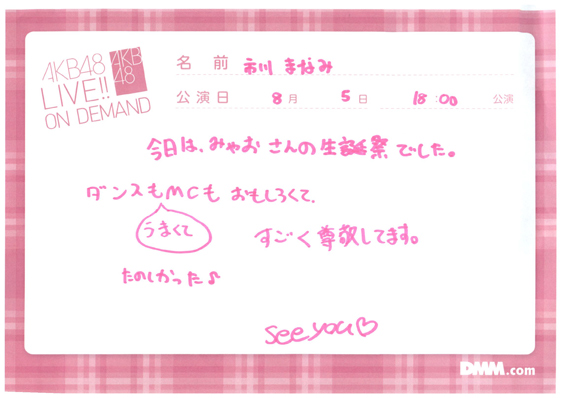 AKB48
LIVE!!
ON DEMAND
AKB
48
名 前 市川 まなみ
公演日 8月 5日 18:00 公演
今日は、みゃお さんの生誕祭 でした。
ダンスもMCも おもしろくて、
うまくて
すごく尊敬してます。
たのしかった♪
see you♡
DMM.com